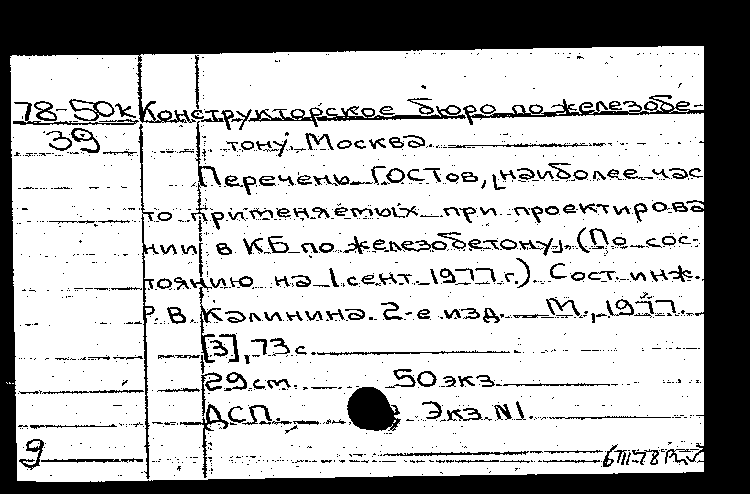 78-50к Конструкторское бюро по железобе-
39 тону. Москва.
Перечень ГОСТов, наиболее час
то применяемых при проектирова
нии в КБ по железобетону. (По сос-
тоянию на 1 сент. 1977 г.) Сост. инж.
Р. В. Калинина. 2-е изд. М., 1977.
[3], 73 с.
29 см. 50 экз.
ДСП. Экз. N1.
9 6 III-78